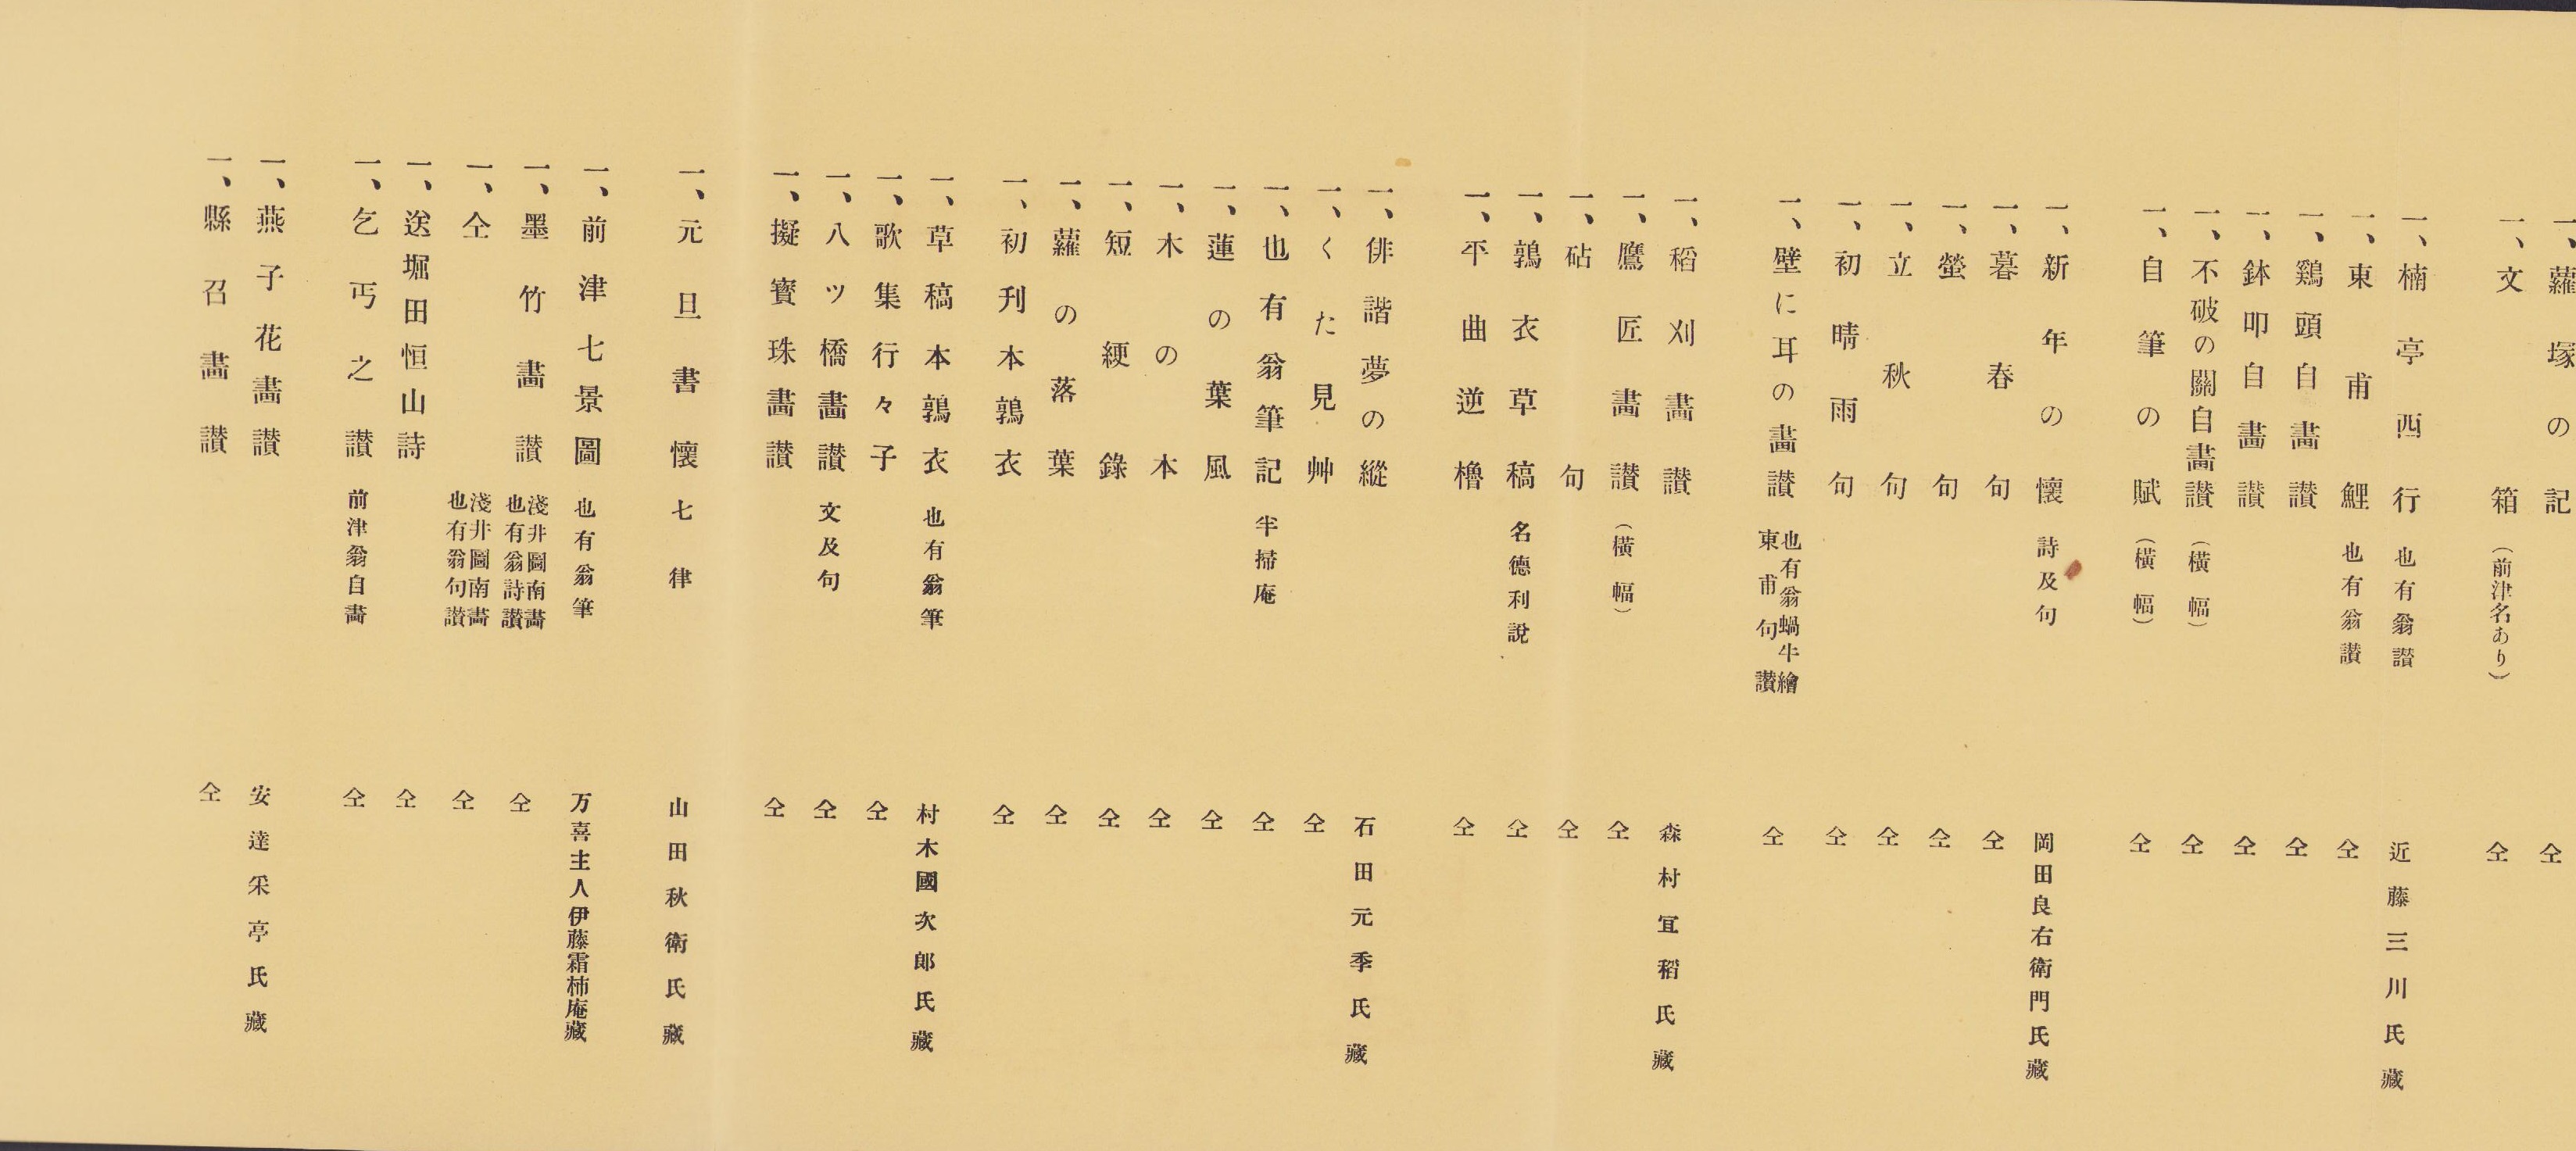 一、蘿塚の記 仝
一、文箱（前津名あり） 仝
一、楠亭西行 也有翁讃 近藤三川氏藏
一、東甫鯉 也有翁讃 仝
一、鷄頭自畵讃 仝
一、鉢叩自畵讃 仝
一、不破の關自畵讃（横幅） 仝
一、自筆の賦（横幅） 仝
一、新年の懷 詩及句 岡田良右衛門氏藏
一、暮春句 仝
一、螢句 仝
一、立秋句 仝
一、初晴雨句 仝
一、壁に耳の畵讃 也有翁蝸牛繪 東甫句讃 仝
一、稻刈畵讃 森村宜稻氏藏
一、鷹匠畵讃（横幅） 仝
一、砧句 仝
一、鶉衣草稿 名德利說 仝
一、平曲逆櫓 仝
一、俳諧夢の縱 石田元季氏藏
一、くた見艸 仝
一、也有翁筆記 半掃庵 仝
一、蓮の葉風 仝
一、木の本 仝
一、短綆錄 仝
一、蘿の落葉 仝
一、初刋本鶉衣 仝
一、草稿本鶉衣 也有翁筆 村木國次郎氏藏
一、歌集行々子 仝
一、八ツ橋畵讃 文及句 仝
一、擬寳珠畵讃 仝
一、元旦書懷七律 山田秋衛氏藏
一、前津七景圖 也有翁筆 万喜主人伊藤霜柿庵藏
一、墨竹畵讃 淺井圖南畵 也有翁詩讃 仝
一、仝 淺井圖南畵 也有翁句讃 仝
一、送堀田恒山詩 仝
一、乞丐之讃 前津翁自畵 仝
一、燕子花畵讃 安達采亭氏藏
一、縣召畵讃 仝